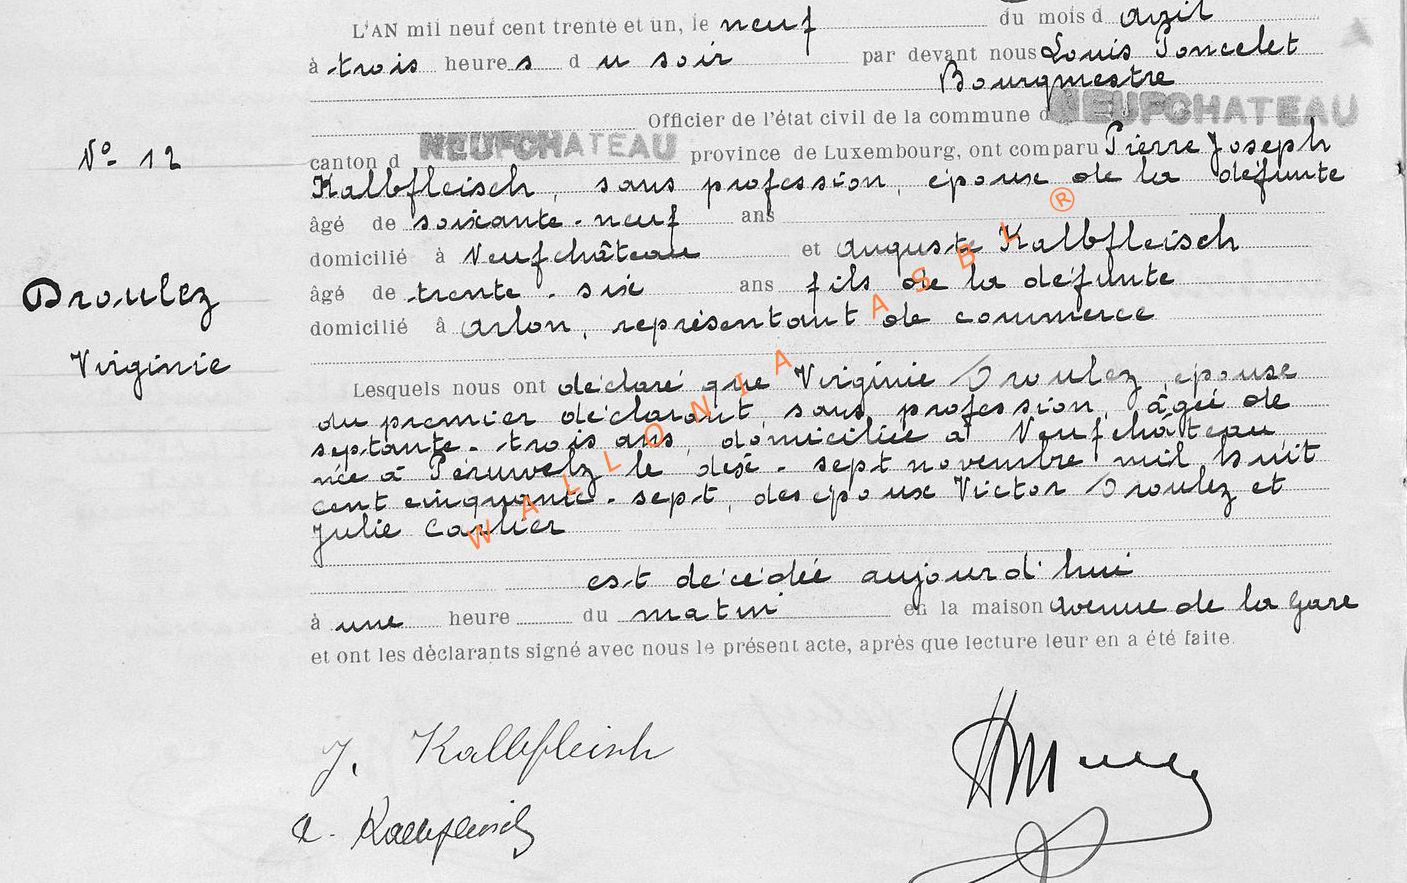 L'AN mil neuf cent trente et un, le neuf du mois d avril
à trois heures du soir par devant nous Louis Poncelet
Bourgmestre
Officier de l'état civil de la commune d NEUFCHATEAU
N° 12
canton d NEUFCHATEAU province de Luxembourg, ont comparu Pierre Joseph
Kalbfleisch, sans profession, époux de la défunte
âgé de soixante-neuf ans
domicilié à Neufchâteau et Auguste Kalbfleisch
âgé de trente-six ans fils de la défunte
domicilié à Arlon, représentant de commerce
Droulez
Virginie
Lesquels nous ont déclaré que Virginie Droulez, épouse
du premier déclarant, sans profession, âgée de
septante-trois ans, domiciliée à Neufchâteau
née à Péruwelz le dix-sept novembre mil huit
cent cinquante-sept, des époux Victor Droulez et
Julie Carlier
est décédée aujourd'hui
à une heure du matin en la maison avenue de la Gare
et ont les déclarants signé avec nous le présent acte, après que lecture leur en a été faite.
J. Kalbfleisch
A. Kalbfleisch
WALLONIA ASBL ®